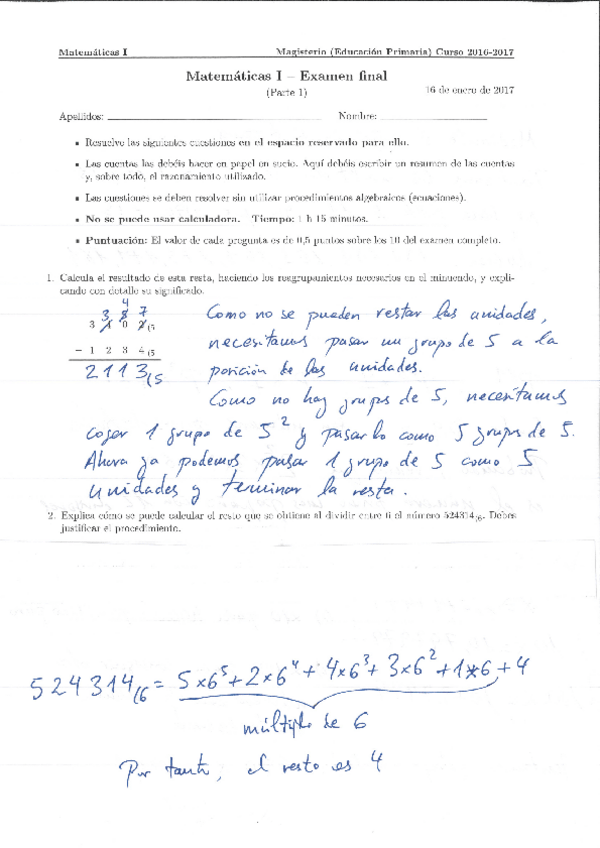 Matemáticas I Magisterio (Educación Primaria) Curso 2016-2017
Matemáticas I – Examen final
(Parte 1) 16 de enero de 2017
Apellidos: Nombre:
Resuelve las siguientes cuestiones en el espacio reservado para ello.
Las cuentas las debéis hacer en papel en sucio. Aquí debéis escribir un resumen de las cuentas
y, sobre todo, el razonamiento utilizado.
Las cuestiones se deben resolver sin utilizar procedimientos algebraicos (ecuaciones).
No se puede usar calculadora. Tiempo: 1 h 15 minutos.
Puntuación: El valor de cada pregunta es de 0,5 puntos sobre los 10 del examen completo.
1. Calcula el resultado de esta resta, haciendo los reagrupamientos necesarios en el minuendo, y expli-
cando con detalle su significado.
4
3 5 7
3 4 0 2(5
− 1 2 3 4(5
2113(5
Como no se pueden restar las unidades,
necesitamos pasar un grupo de 5 a la
posición de las unidades.
Como no hay grupos de 5, necesitamos
coger 1 grupo de 5² y pasarlo como 5 grupos de 5.
Ahora ya podemos pasar 1 grupo de 5 como 5
unidades y terminar la resta.
2. Explica cómo se puede calcular el resto que se obtiene al dividir entre 6 el número 524314(6. Debes
justificar el procedimiento.
524314(6 = 5×6⁵+2×6⁴+4×6³+3×6²+1×6+4
múltiplo de 6
Por tanto, el resto es 4